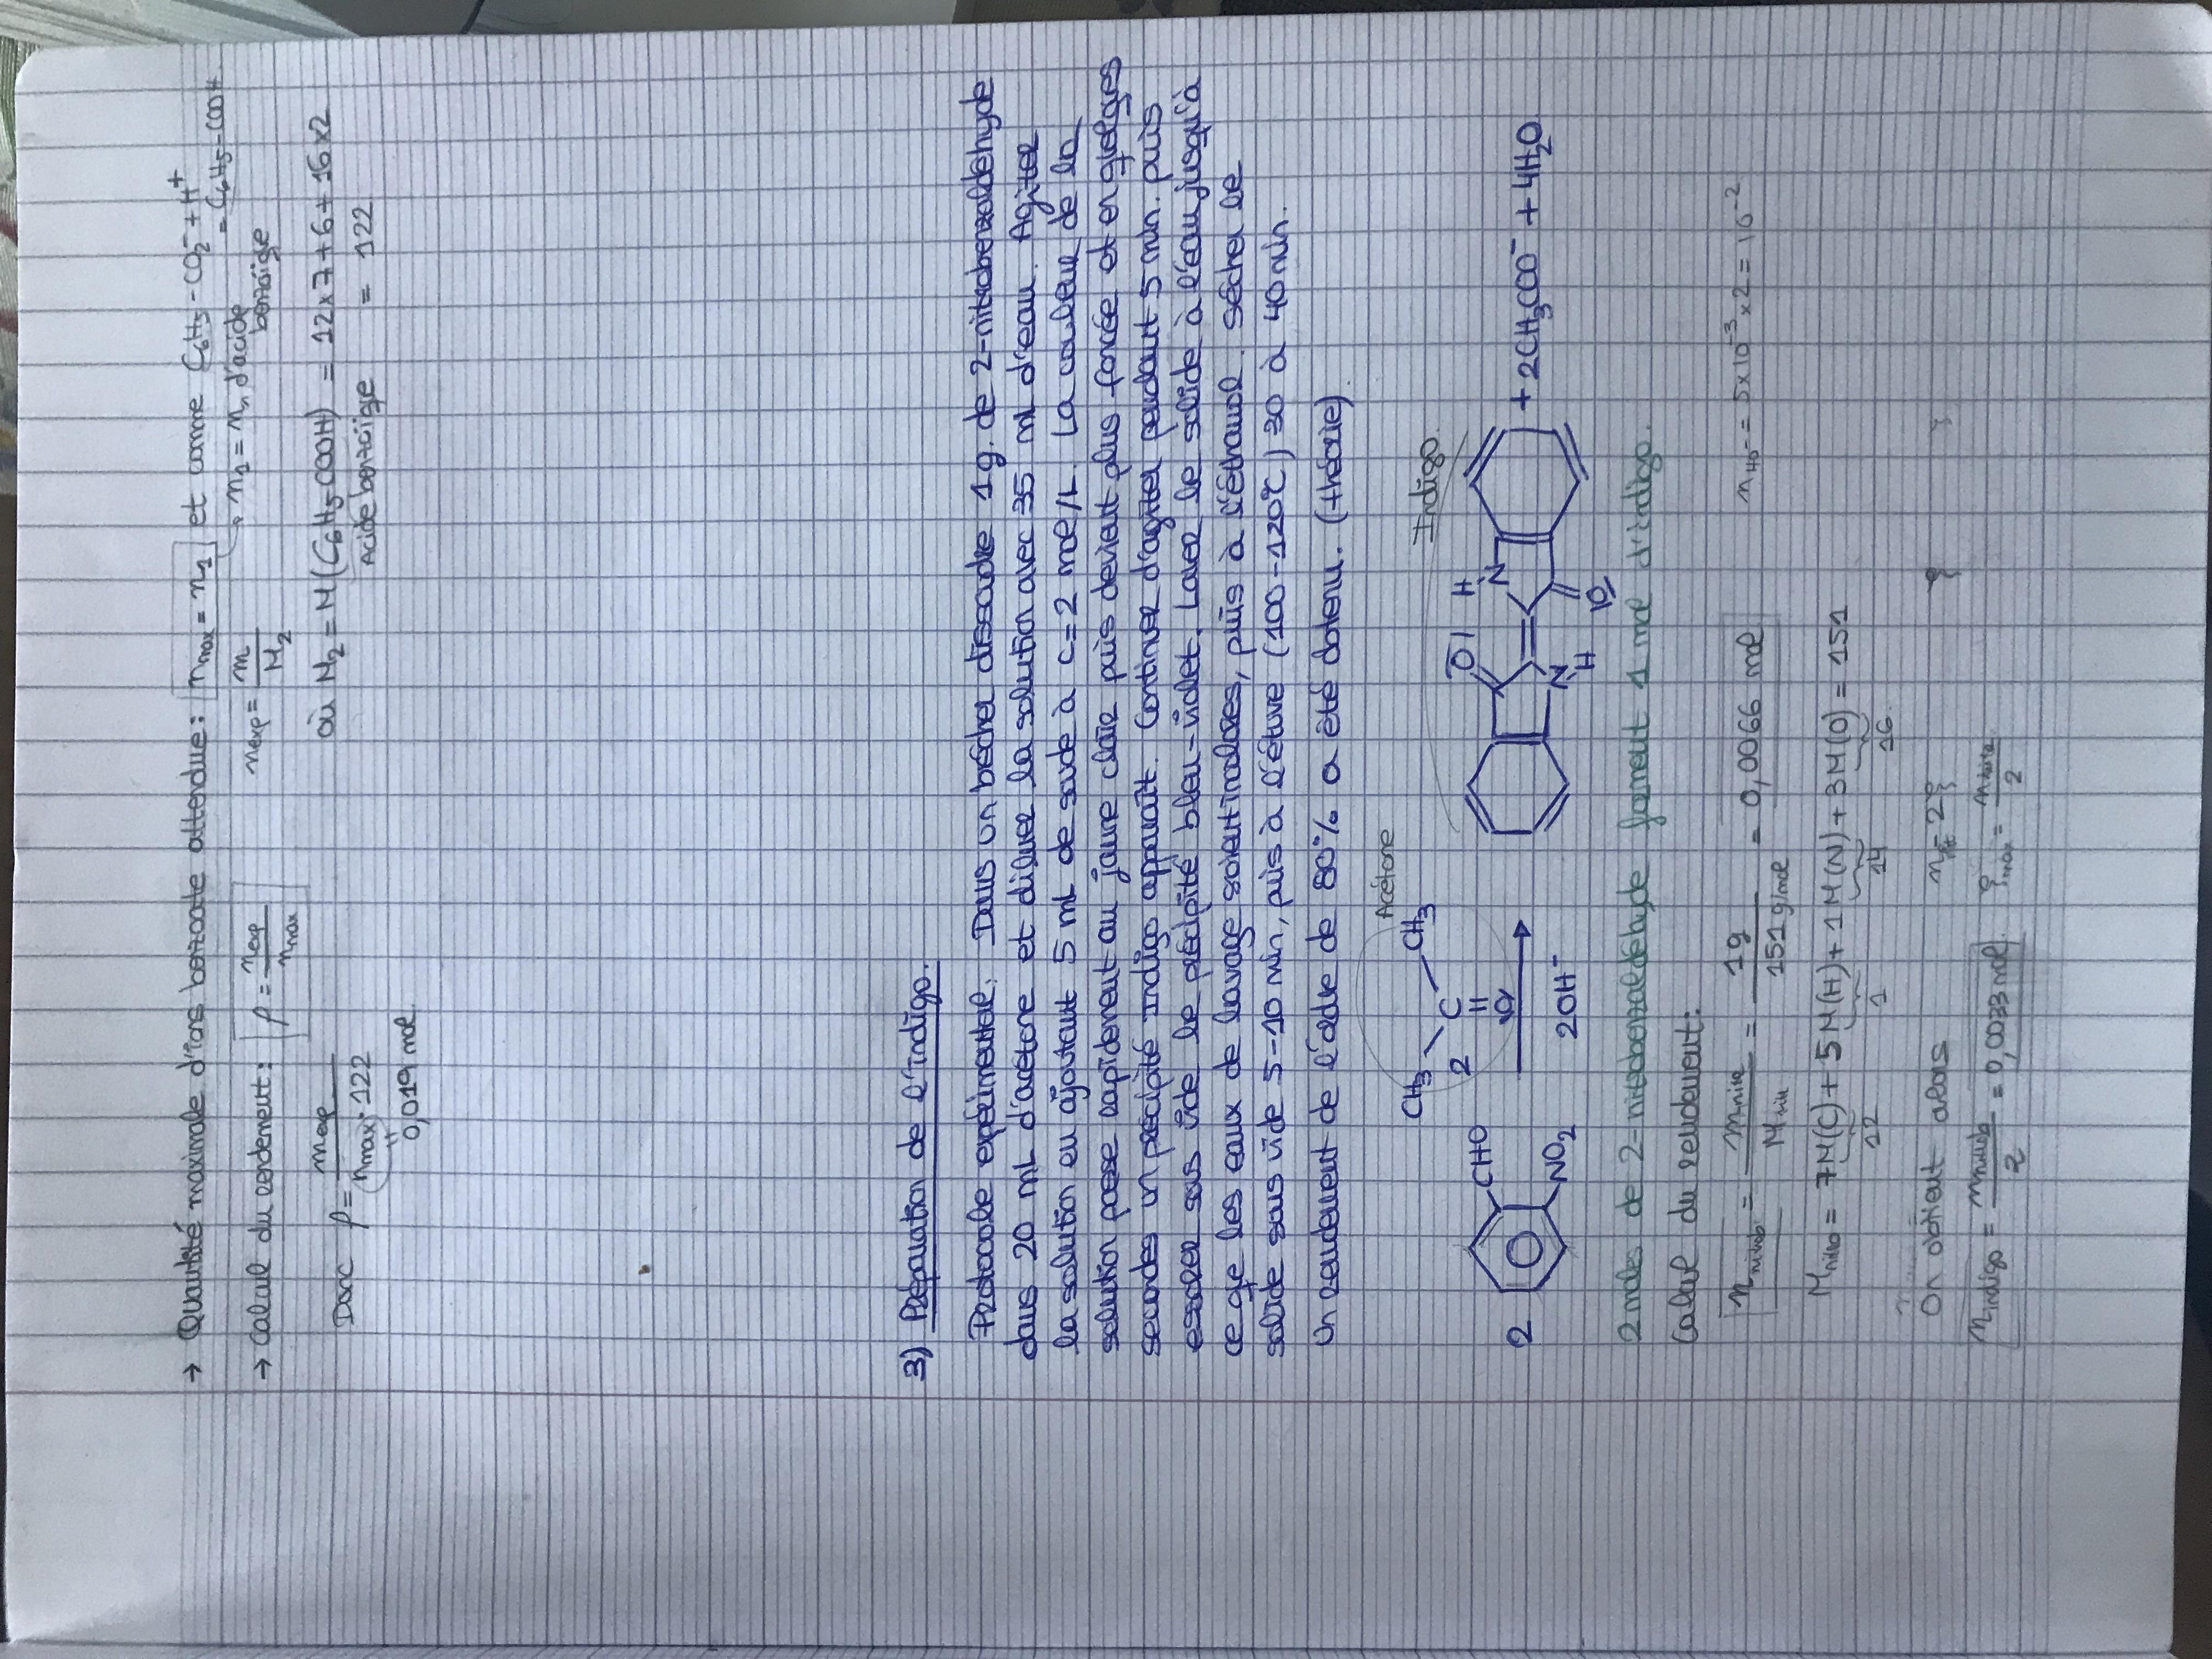 → Quantité maximale d'ions benzoate attendue : nmax = n1 et comme C6H5-CO2⁻ + H⁺
= C6H5-COOH
→ n1 = n, d'acide benzoïque
→ Calcul du rendement : ρ = nexp / nmax
nexp = m / M2
Donc ρ = mexp / nmax · 122
où M2 = M(C6H5COOH) = 12x7 + 6 + 16x2
0,019 mol
Acide benzoïque = 122
3) Préparation de l'indigo.
Protocole expérimental : Dans un bécher dissoudre 1g. de 2-nitrobenzaldéhyde
dans 20 mL d'acétone et diluer la solution avec 35 mL d'eau. Agiter
la solution en ajoutant 5 mL de soude à c=2 mol/L. La couleur de la
solution passe rapidement au jaune claire puis devient plus foncée et en quelques
secondes un précipité indigo apparaît. Continuer d'agiter pendant 5 min. puis
essorer sous vide le précipité bleu-violet. Laver le solide à l'eau jusqu'à
ce que les eaux de lavage soient incolores, puis à l'éthanol. Sécher le
solide sous vide 5-10 min, puis à l'étuve (100-120°C) 30 à 40 min.
Un rendement de l'ordre de 80% a été obtenu. (théorie)
Acétone
Indigo
CH3 C CH3
2
O
2 CHO NO2
2OH⁻
O H N N H O
+ 2CH3COO⁻ + 4H2O
2 moles de 2-nitrobenzaldéhyde forment 1 mol d'indigo.
Calcul du rendement :
nnitro = mnitro / Mnitro = 1g / 151g/mol = 0,0066 mol
nHO⁻ = 5x10⁻³ x 2 = 10⁻²
Mnitro = 7M(C) + 5M(H) + 1M(N) + 3M(O) = 151
12 1 14 16
On obtient alors
nindigo = nnitro / 2 = 0,0033 mol